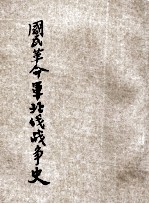 國民革命軍北伐战争史